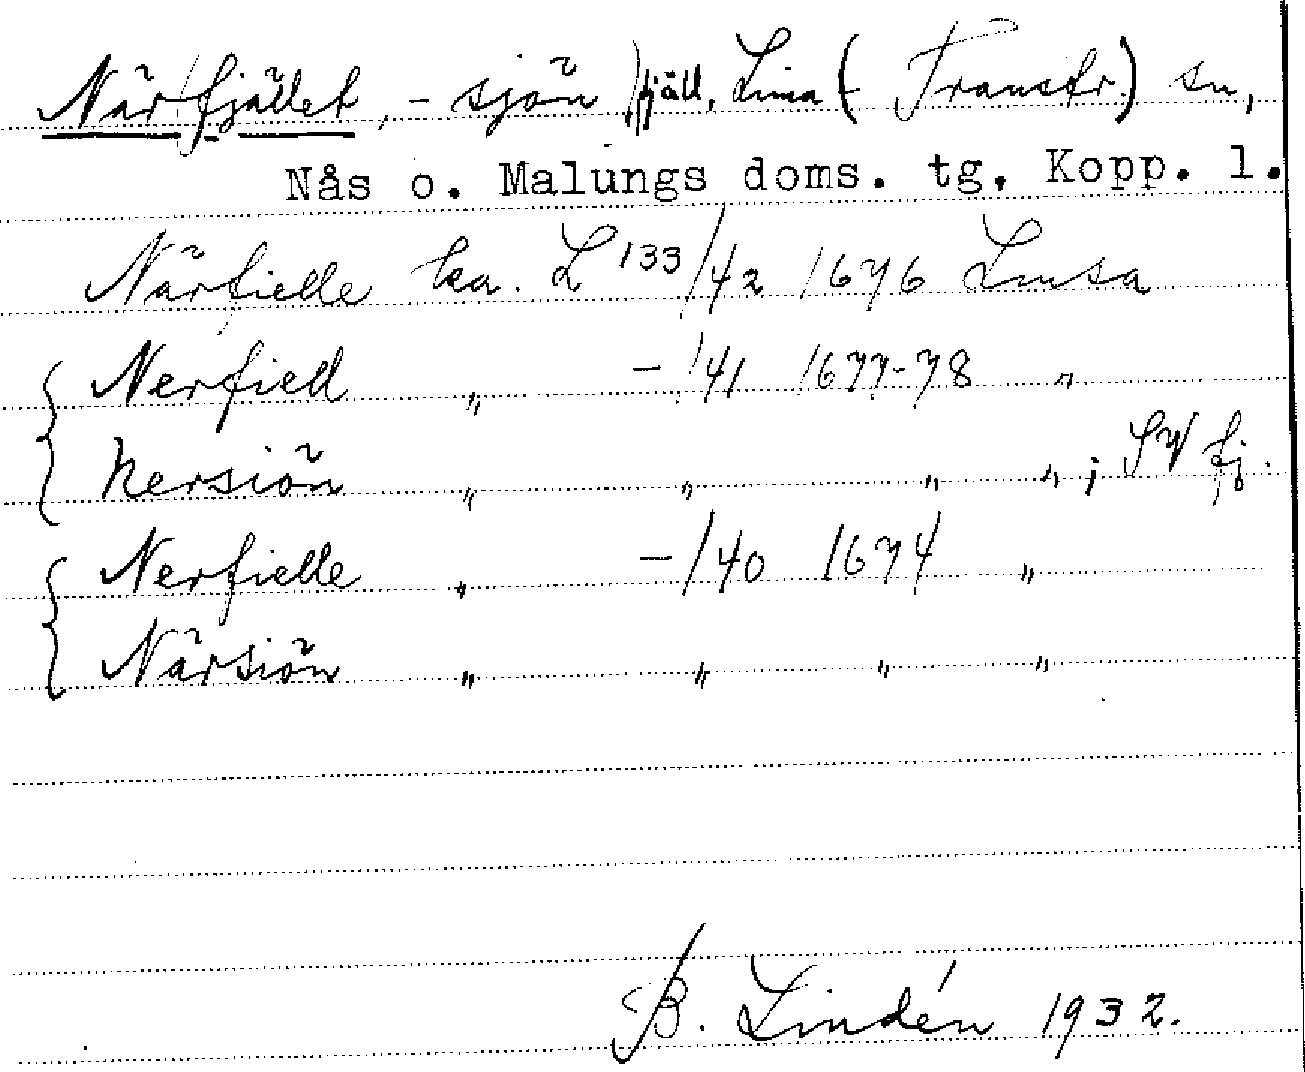 Närfjället, - sjön fjäll, Lima (Transtr.) sn,
Nås o. Malungs doms. tg. Kopp. l.
Närfielle ka. L 133/42 1676 Lmsa
{ Nerfiell " -/41 1677-78 "
{ Nersiön " " " " ; SV fj.
{ Nerfielle " -/40 1674 "
{ Närsiön " " " "
B. Lindén 1932.